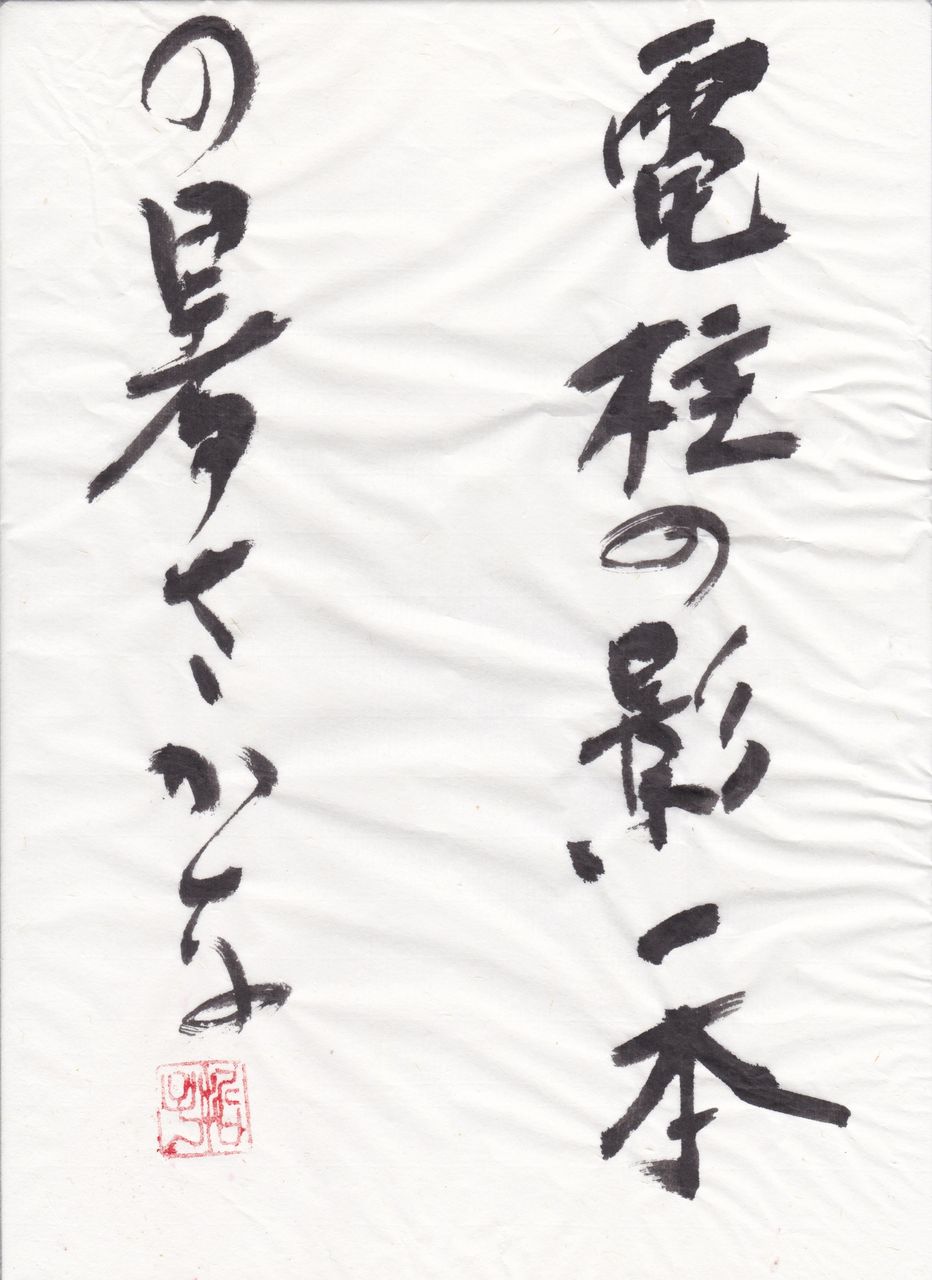 電柱の影一本
の暑さかな